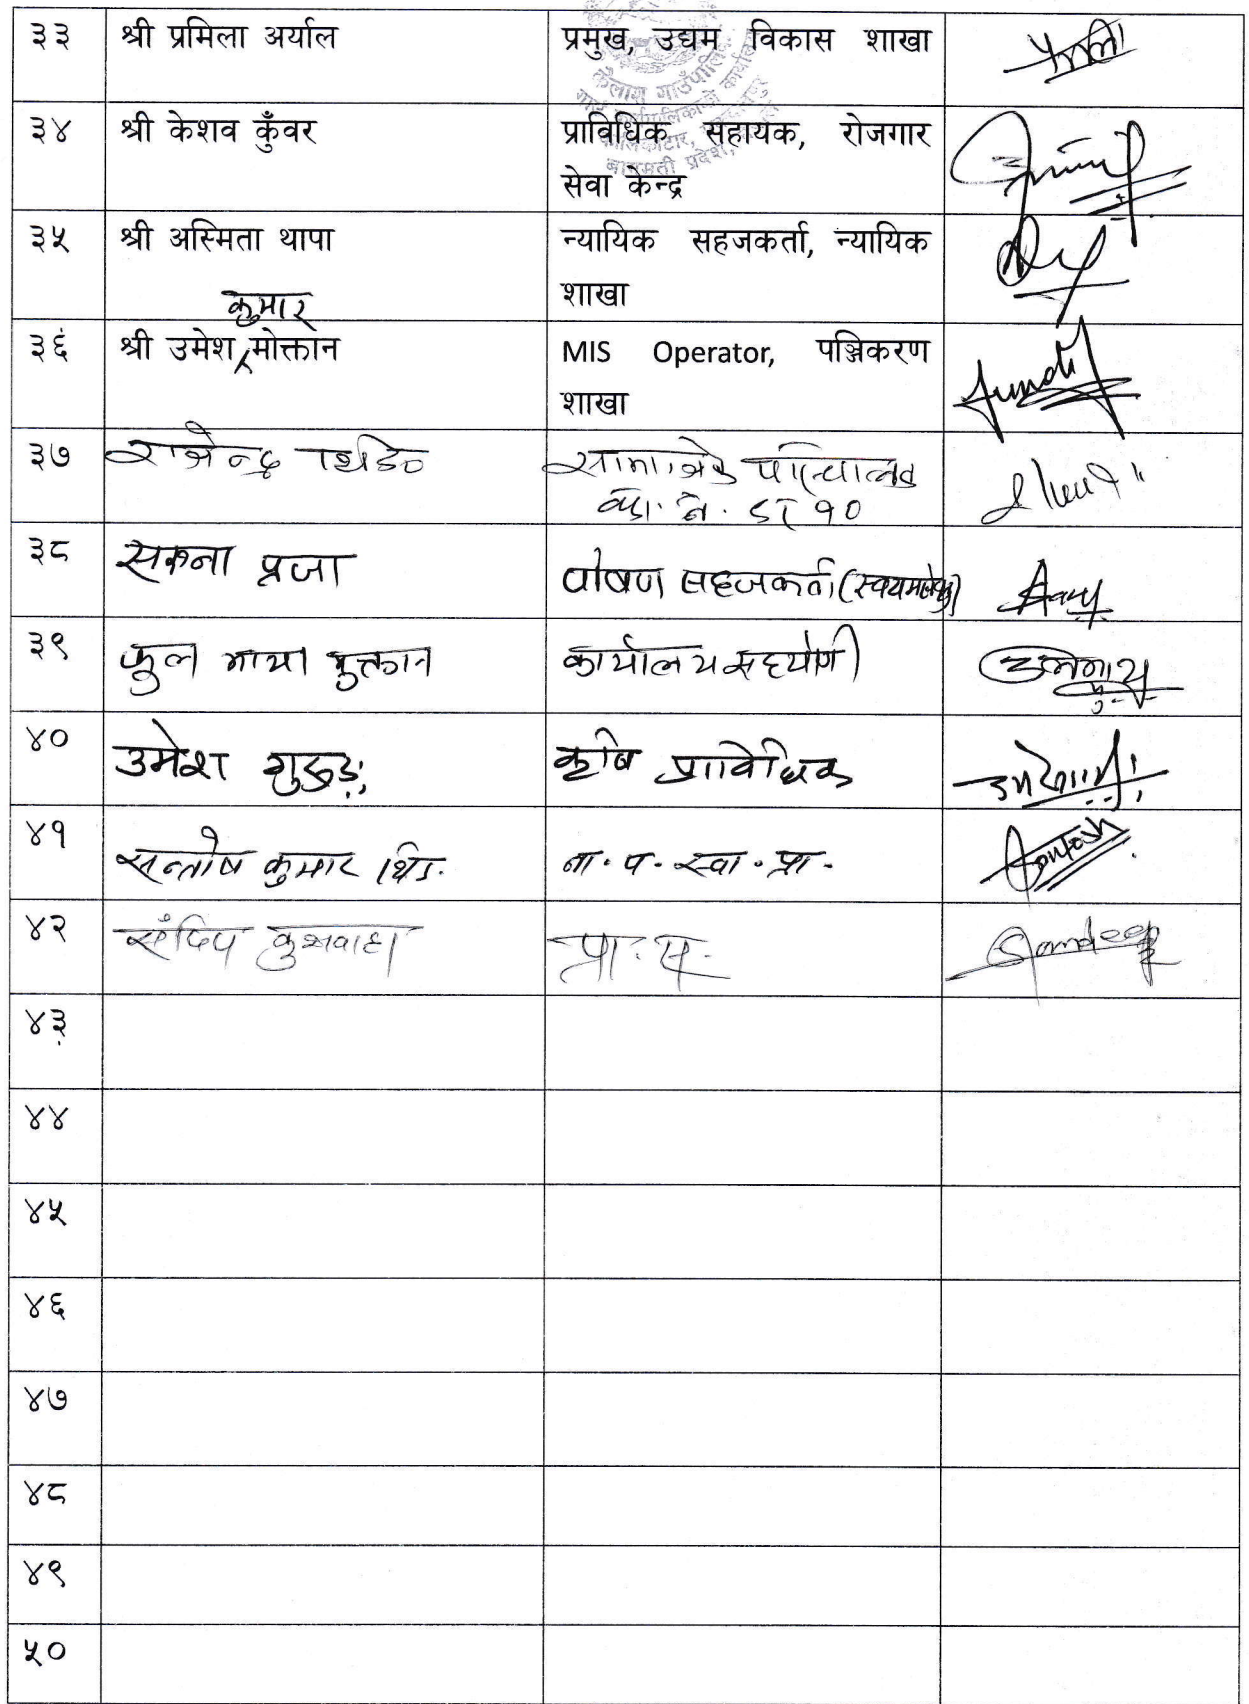 ३३ श्री प्रमिला अर्याल प्रमुख, उद्यम विकास शाखा
कैलाश गाउँपालिका
बागमती प्रदेश,
३४ श्री केशव कुँवर प्राविधिक सहायक, रोजगार
सेवा केन्द्र
३५ श्री अस्मिता थापा न्यायिक सहजकर्ता, न्यायिक
शाखा
कुमार
३६ श्री उमेश मोक्तान MIS Operator, पञ्जिकरण
शाखा
३७ राजेन्द्र सामाजिक परिचालक
१०
३८ प्रजा पोषण सहजकर्ता
३९ फुल माया मुक्तान कार्यालय सहयोगी
४० उमेश गुरुङ कृषि प्राविधिक
४१ सन्तोष कुमार थिङ ना. प. स्वा. प्रा. Santosh
४२ संदिप कुशवाहा प्रा. स. Sandeep
४३
४४
४५
४६
४७
४८
४९
५०